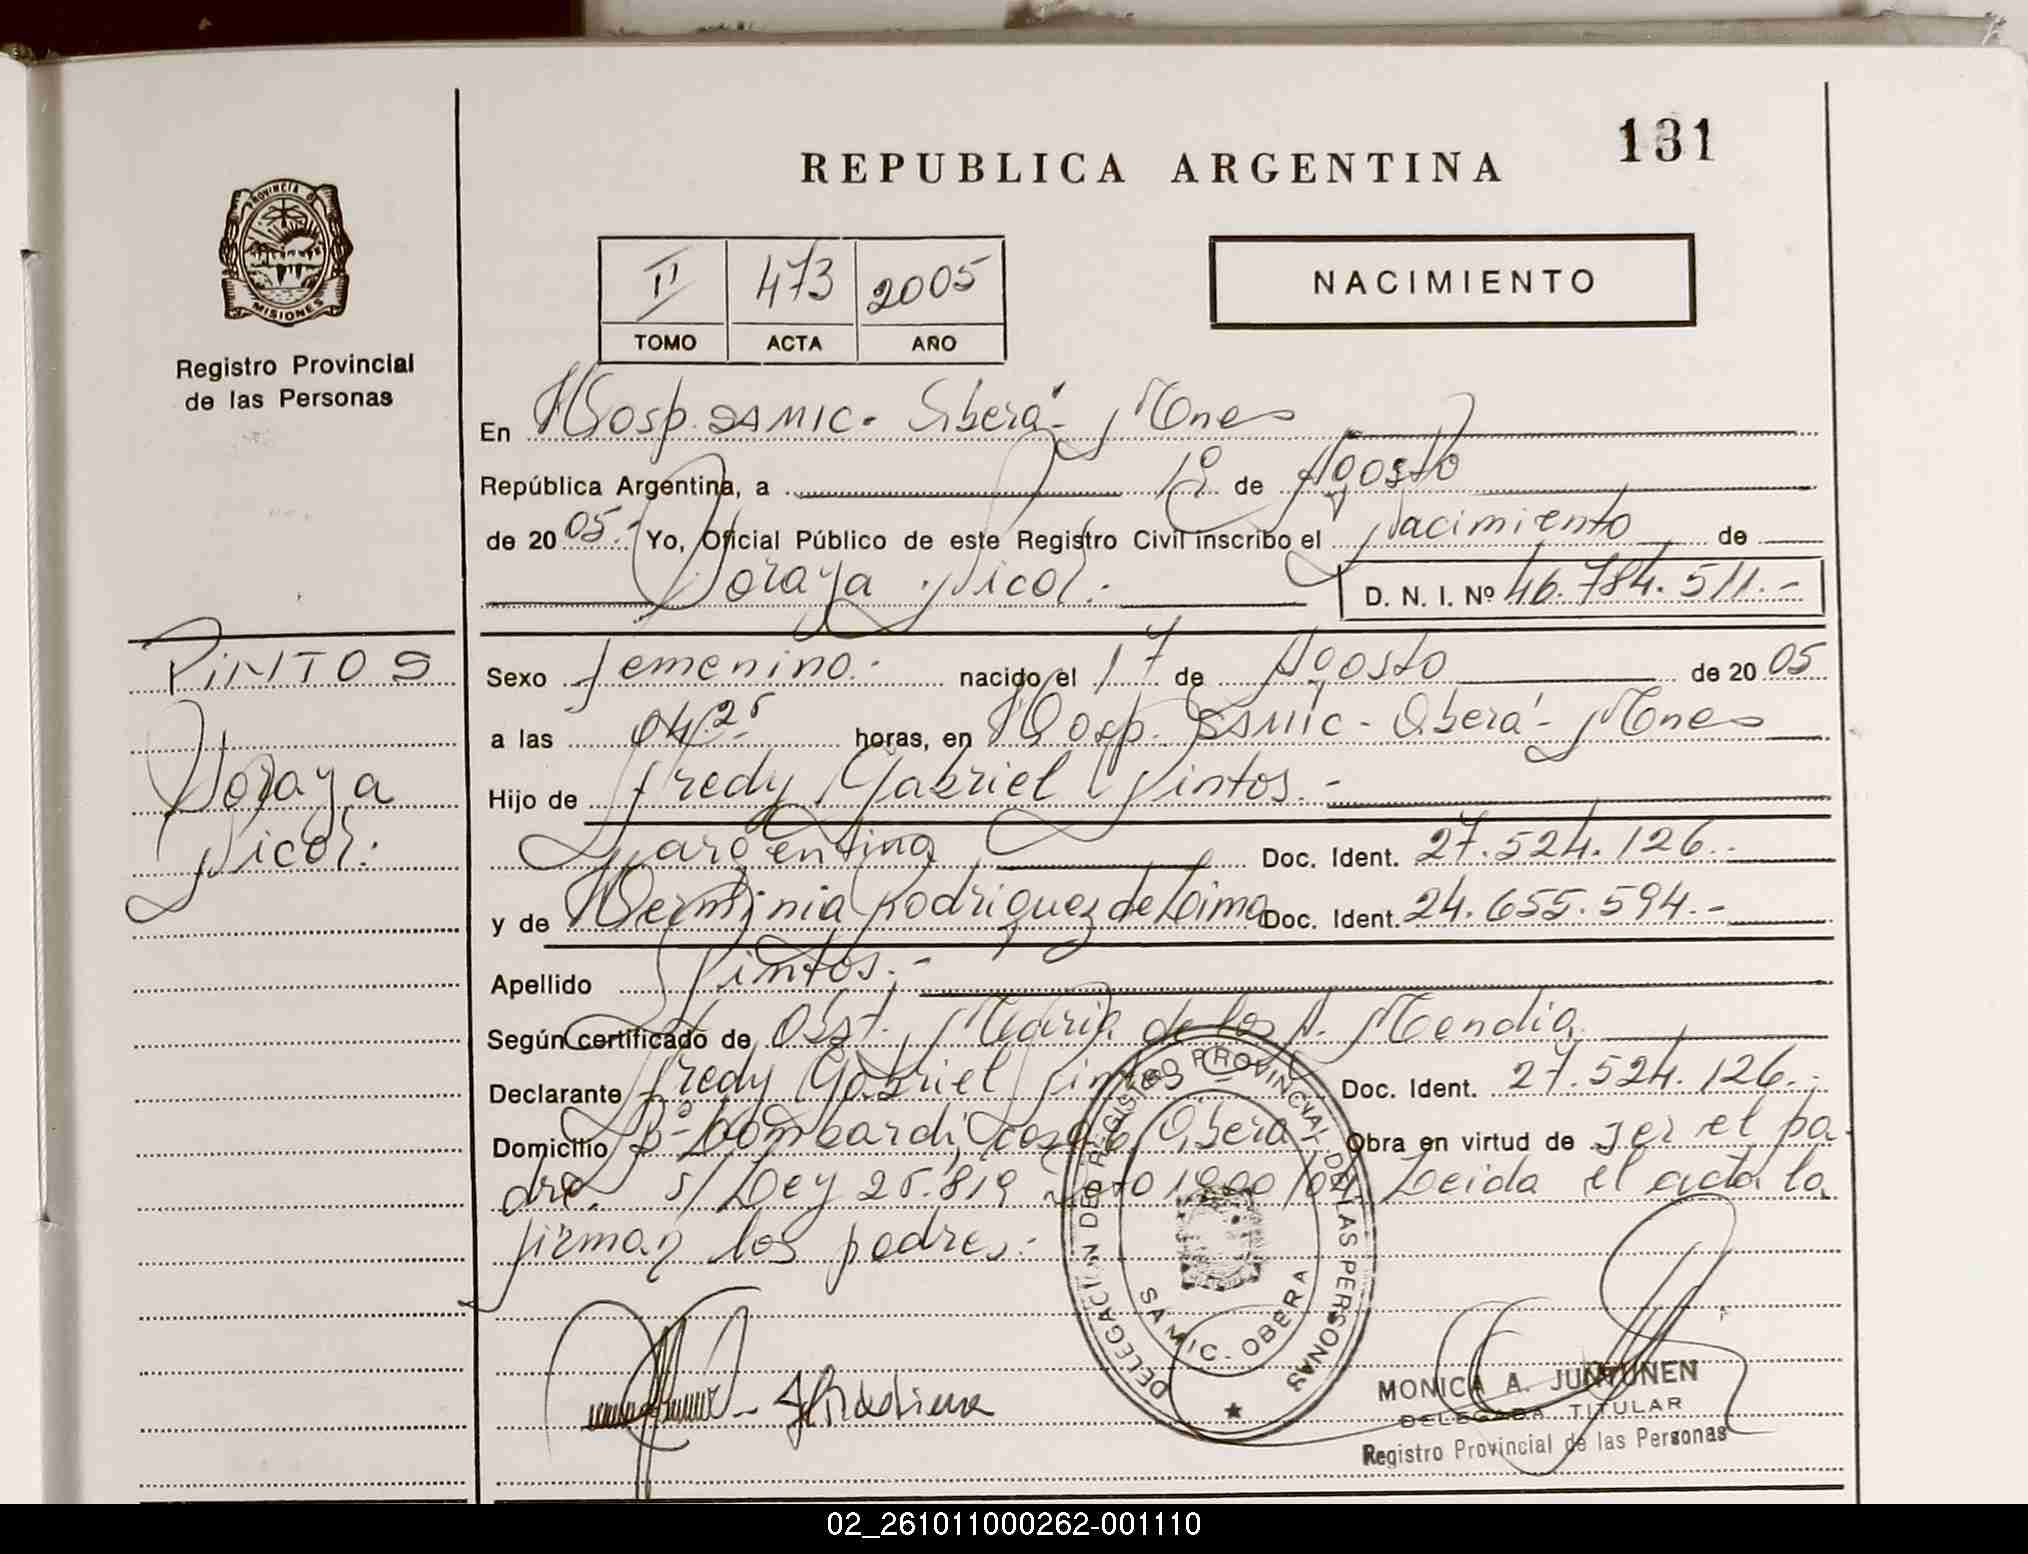 131
REPUBLICA ARGENTINA
PROVINCIA DE
MISIONES
Registro Provincial
de las Personas
II 473 2005
TOMO ACTA AÑO
NACIMIENTO
En Hosp. SAMIC. Oberá - Mnes
República Argentina, a 18 de Agosto
de 2005.- Yo, Oficial Público de este Registro Civil inscribo el Nacimiento de
Soraya Nicol.- D. N. I. Nº 46.784.511.-
PINTOS
Soraya
Nicol.-
Sexo femenino.- nacido el 17 de Agosto de 2005
a las 04,25 horas, en Hosp. SAMIC - Oberá - Mnes
Hijo de Fredy Gabriel Pintos.-
argentina Doc. Ident. 27.524.126.-
y de Herminia Rodriguez de Lima Doc. Ident. 24.655.594.-
Apellido Pintos.-
Según certificado de Obst. Maria de los A. Mendia
Declarante Fredy Gabriel Pintos Doc. Ident. 27.524.126.-
Domicilio Bº Lombardi, Oberá Obra en virtud de ser el pa-
dre s/ Ley 25.819 Dto 1900/04 Leida el acta la
firman los padres.-
DELEGACION DEL REGISTRO PROVINCIAL DE LAS PERSONAS
SAMIC. OBERA
MONICA A. JUNTUNEN
DELEGADA TITULAR
Registro Provincial de las Personas
02_261011000262-001110